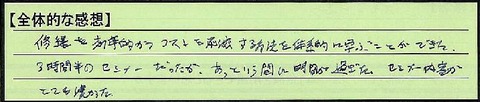 【全体的な感想】
修繕を効率的かつコストを削減する方法を体系的に学ぶことができた。
3時間半のセミナーだったが、あっという間に時間が過ぎた。セミナー内容が
とても良かった。